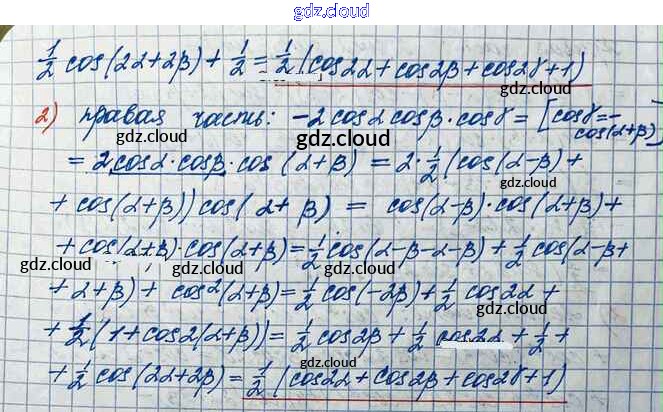 gdz.cloud
gdz.cloud
½ cos(2α+2β)+½=½(cos2α+cos2β+cos2γ+1)
2) правая часть: -2cosα cosβ·cosγ=[cosγ=-cos(α+β)]
gdz.cloud
gdz.cloud
=2cosα·cosβ·cos(α+β)=2·½(cos(α-β)+
gdz.cloud
+cos(α+β))cos(α+β)=cos(α-β)·cos(α+β)+
gdz.cloud
+cos(α+β)·cos(α+β)=½cos(α-β-α-β)+½cos(α-β+
gdz.cloud gdz.cloud gdz.cloud
+α+β)+cos²(α+β)=½cos(-2β)+½cos2α+
gdz.cloud
+½(1+cos2(α+β))=½cos2β+½cos2α+½+
gdz.cloud
+½cos(2α+2β)=½(cos2α+cos2β+cos2γ+1)
gdz.cloud